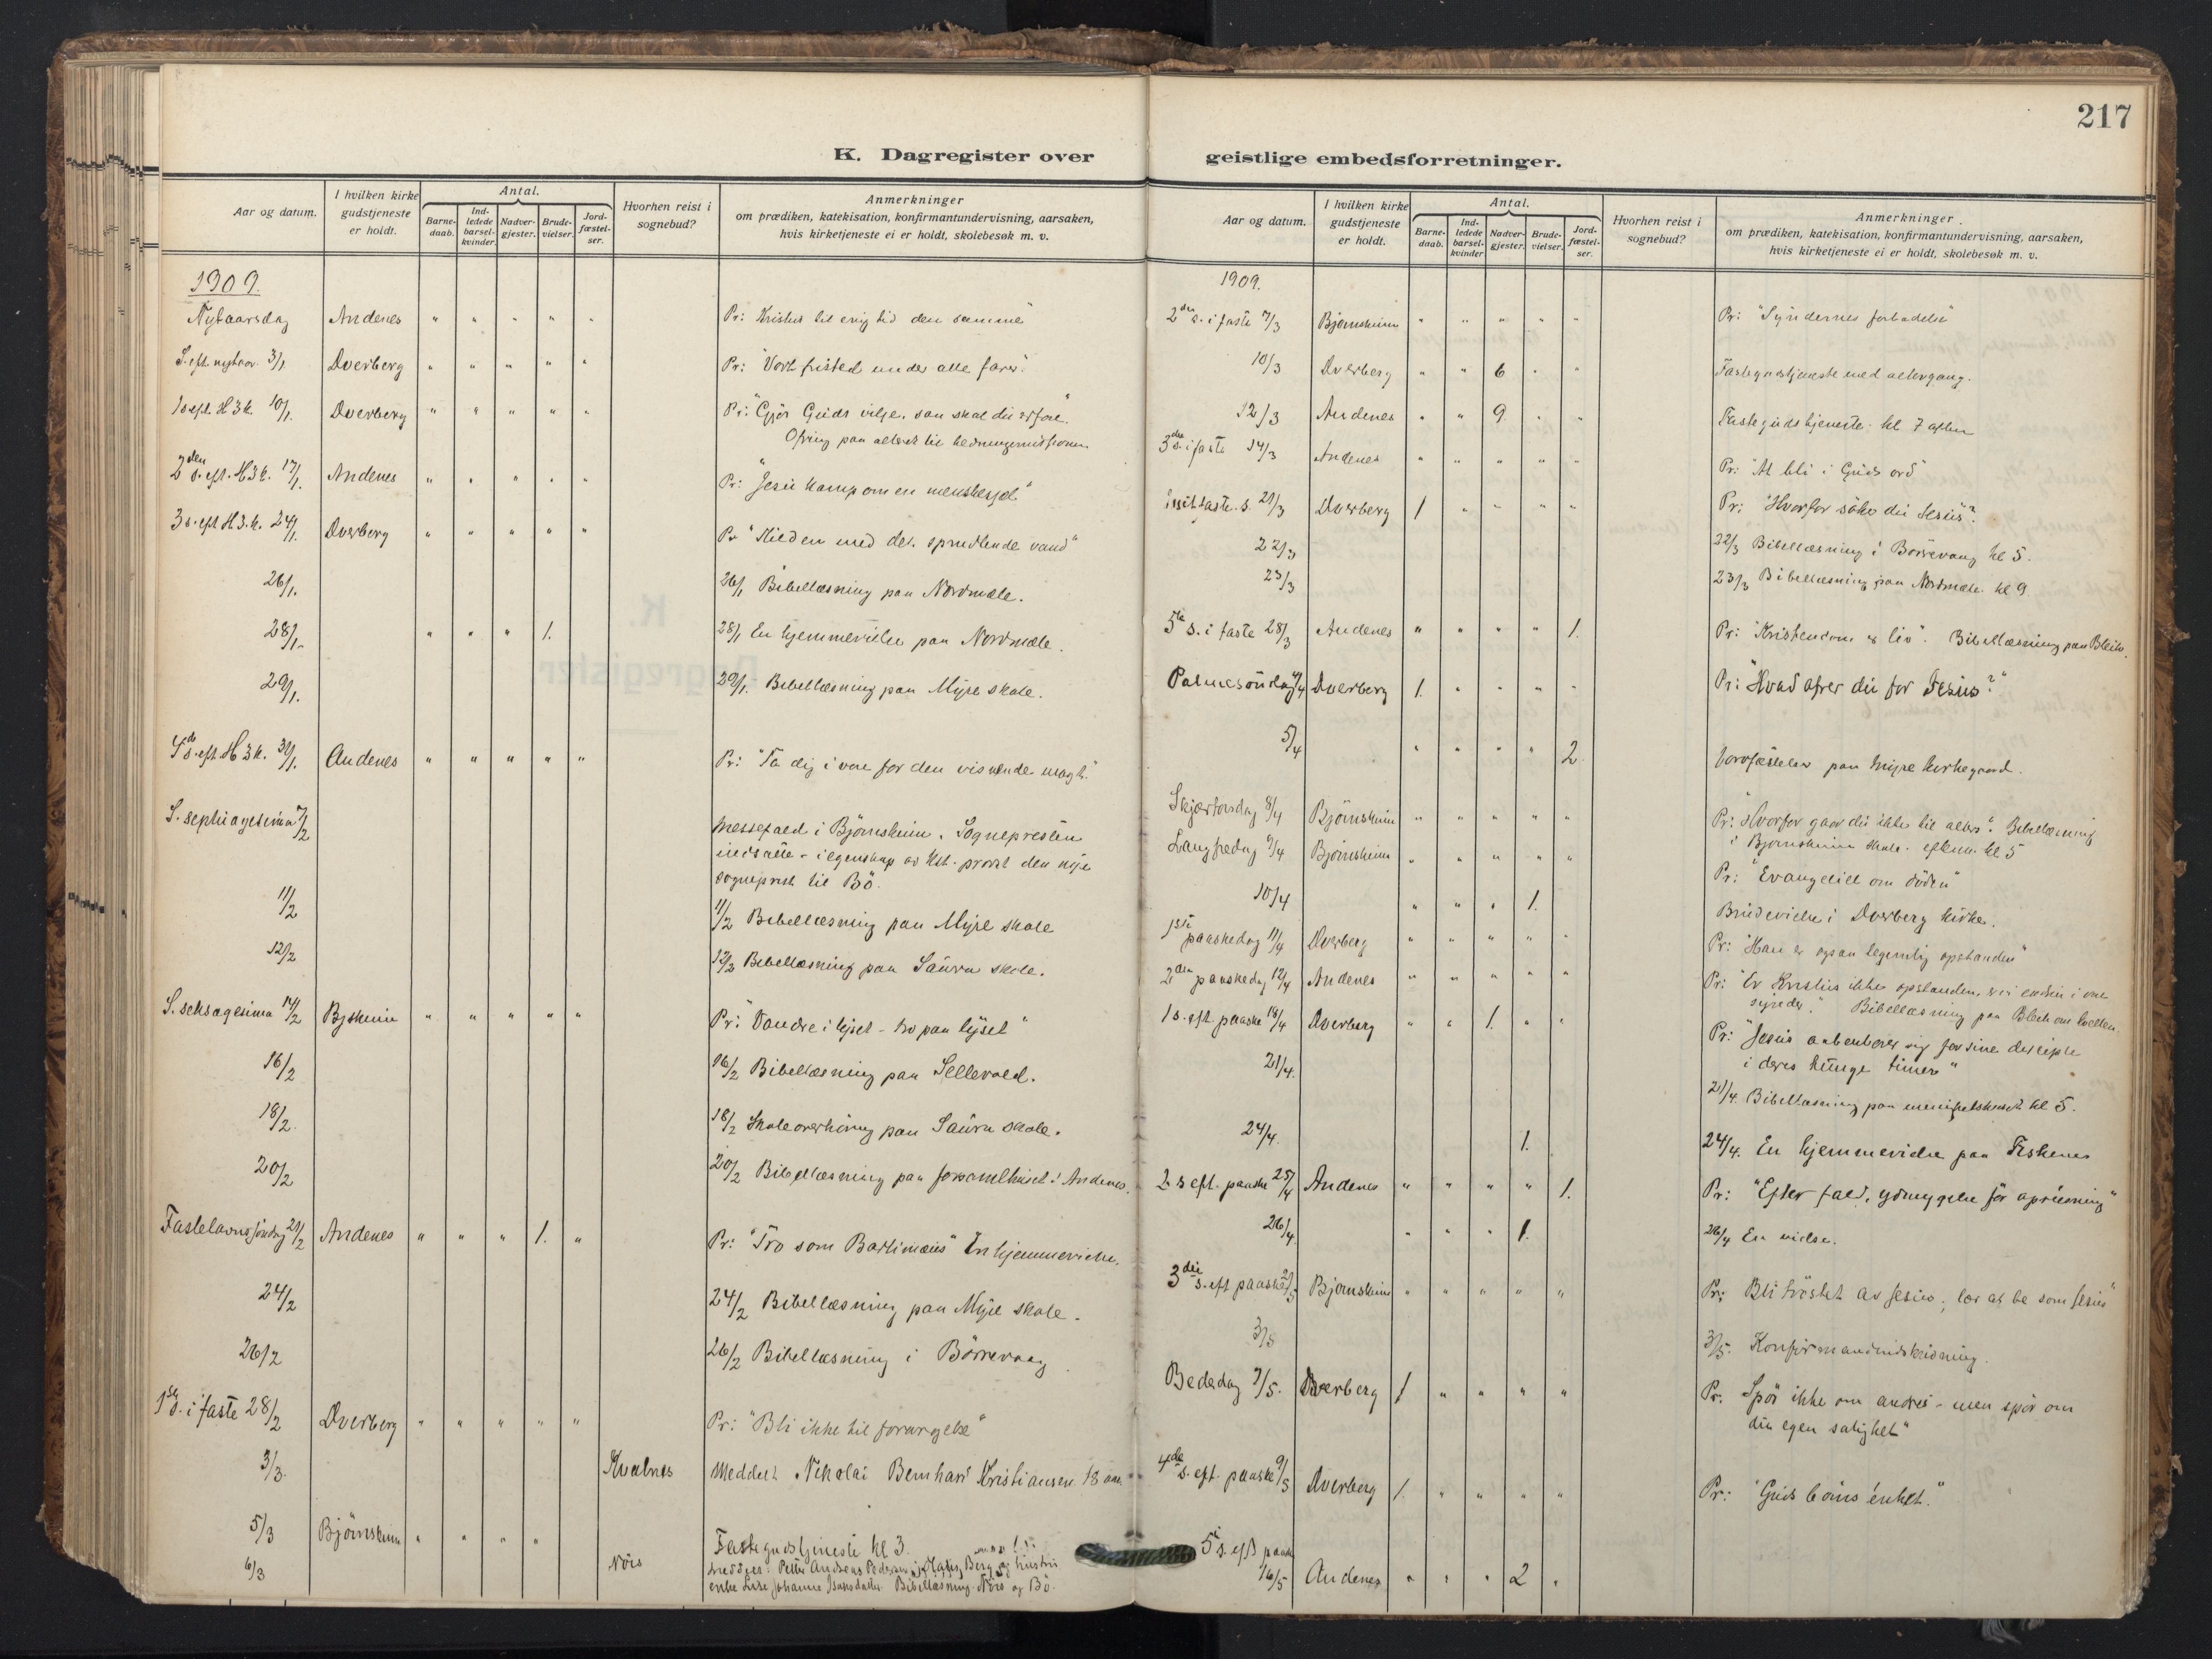 217
K. Dagregister over
geistlige embedsforretninger.
Aar og datum.
I hvilken kirke gudstjeneste er holdt.
Antal.
Barnedaab.
Indledede barselkvinder.
Nadvergjester.
Brudevielser.
Jordfæstelser.
Hvorhen reist i sognebud?
Anmerkninger
om prædiken, katekisation, konfirmantundervisning, aarsaken,
hvis kirketjeneste ei er holdt, skolebesøk m. v.
1909.
Nytaarsdag Andenes " " " " " Pr: "Kristus til evig tid den samme"
S. eft. nytaar 3/1 Dverberg " " " " " Pr: "Vort fristed under alle farer"
1 s eft. H 3 k. 10/1. Dverberg " " " " " Pr: "Gjør Guds vilje, saa skal du erfare"
Ofring paa alteret til hedningemissionen
2den s. eft. H 3 k. 17/1. Andenes " " " " " Pr: "Jesu kamp om en menneskesjel"
3 s. eft H 3. k. 24/1. Dverberg " " " " " Pr "Kilden med det sprudlende vand"
26/1. 26/1 Bibellæsning paa Nordmæle.
28/1. " " " 1. 28/1 En hjemmevielse paa Nordmæle.
29/1. 29/1. Bibellæsning paa Myre skole.
4de s. eft. H 3 k. 31/1. Andenes " " " " " Pr: "Ta dig i vare for den visnende magt."
S. septuagesima 7/2 Messefald i Bjørnskinn. Sognepresten
indsatte - i egenskap av kst. provst den nye
sogneprest til Bö.
11/2 11/2 Bibellæsning paa Myre skole
12/2 12/2 Bibellæsning paa Saura skole.
S. seksagesima 14/2 Bjskinn " " " " " Pr: "Vandre i lyset - tro paa lyset"
16/2 16/2 Bibellæsning paa Sellevold.
18/2. 18/2 Skoleoverhöring paa Saura skole.
20/2 20/2 Bibellæsning paa forsamlhuset i Andenes.
Fastelavnssöndag 21/2 Andenes " " " 1. " Pr: "Tro som Bartimæus" En hjemmevielse.
24/2 24/2 Bibellæsning paa Myre skole.
26/2 26/2 Bibellæsning i Börrevaag
1ste s. i faste 28/2 Dverberg " " " " " Pr: "Bli ikke til forargelse"
3/3. Kvalnes Meddelt Nikolai Bernhard Kristiansen 18 aar
5/3 Björnskinn " " " " Fastegudstjeneste kl 3.
6/3 Nöis Meddelt: Petter Andreas Pedersen, Berg og hustru
enke Lise Johanne Isaksdatter. Bibellæsning Nöis og Bö.
Aar og datum.
I hvilken kirke gudstjeneste er holdt.
Antal.
Barnedaab.
Indledede barselkvinder
Nadvergjester.
Brudevielser.
Jordfæstelser.
Hvorhen reist i sognebud?
Anmerkninger
om prædiken, katekisation, konfirmantundervisning, aarsaken,
hvis kirketjeneste ei er holdt, skolebesøk m. v.
1909.
2den s. i faste 7/3 Bjørnskinn " " " " " Pr: "Syndernes forladelse"
10/3 Dverberg " " 6 " " Fastegudstjeneste med altergang.
12/3 Andenes " " 9 " " Fastegudstjeneste kl 7 aften
3die s. i faste 14/3 Andenes " " " " " Pr: "At bli i Guds ord"
Midfaste s. 21/3 Dverberg 1 " " " " Pr: "Hvorfor söker du Jesus?"
22/3 22/3 Bibellæsning i Börrevaag kl 5.
23/3 23/3 Bibellæsning paa Nordmæle kl 9
5te s. i faste 28/3 Andenes " " " " 1. Pr: "Kristendom er liv". Bibellæsning paa Bleik.
Palmesöndag 4/4 Dverberg 1. " " " " Pr: "Hvad ofrer du for Jesus?"
5/4 " " " " 2. Jordfæstelser paa Myre kirkegaard.
Skjærtorsdag 8/4 Bjørnskinn " " " " " Pr: "Hvorfor gaar du ikke til alters". Bibellæsning
i Bjørnskinn skole. efterm. kl 5
Langfredag 9/4 Bjørnskinn " " " " " Pr: "Evangeliet om döden"
10/4 " " " 1. Brudevielse i Dverberg kirke.
1ste paaskedag 11/4 Dverberg " " " " " Pr: "Han er ogsaa legemlig opstanden"
2den paaskedag 12/4 Andenes " " " " " Pr: "Er Kristus ikke opstanden, er vi endnu i vore
synder." Bibellæsning paa Bleik om kvelden.
1 s. eft. paaske 18/4 Dverberg " " 1. " " Pr: "Jesus aabenbarer sig for sine disciple
i deres tunge timer"
21/4. 21/4. Bibellæsning paa menighetshuset kl 5.
24/4. 1. 24/4. En hjemmevielse paa Fiskenes
2 s eft. paaske 25/4 Andenes " " " " 1. Pr: "Efter fald, ydmygelse før opreisning"
26/4. " " " 1. 26/4 En vielse.
3die s. eft paaske 2/5 Bjørnskinn " " " " " Pr: Bli tröstet av Jesus; lær at be som Jesus"
3/5 3/5. Konfirmandindskrivning.
Bededag 7/5. Dverberg 1 " " " " Pr. Spör ikke om andres - men spör om
din egen salighet"
4de s. eft. paaske 9/5 Dverberg 1. " " " " Pr: "Guds barns enhet."
5te s. eft paaske
16/5 Andenes " " " 2 "